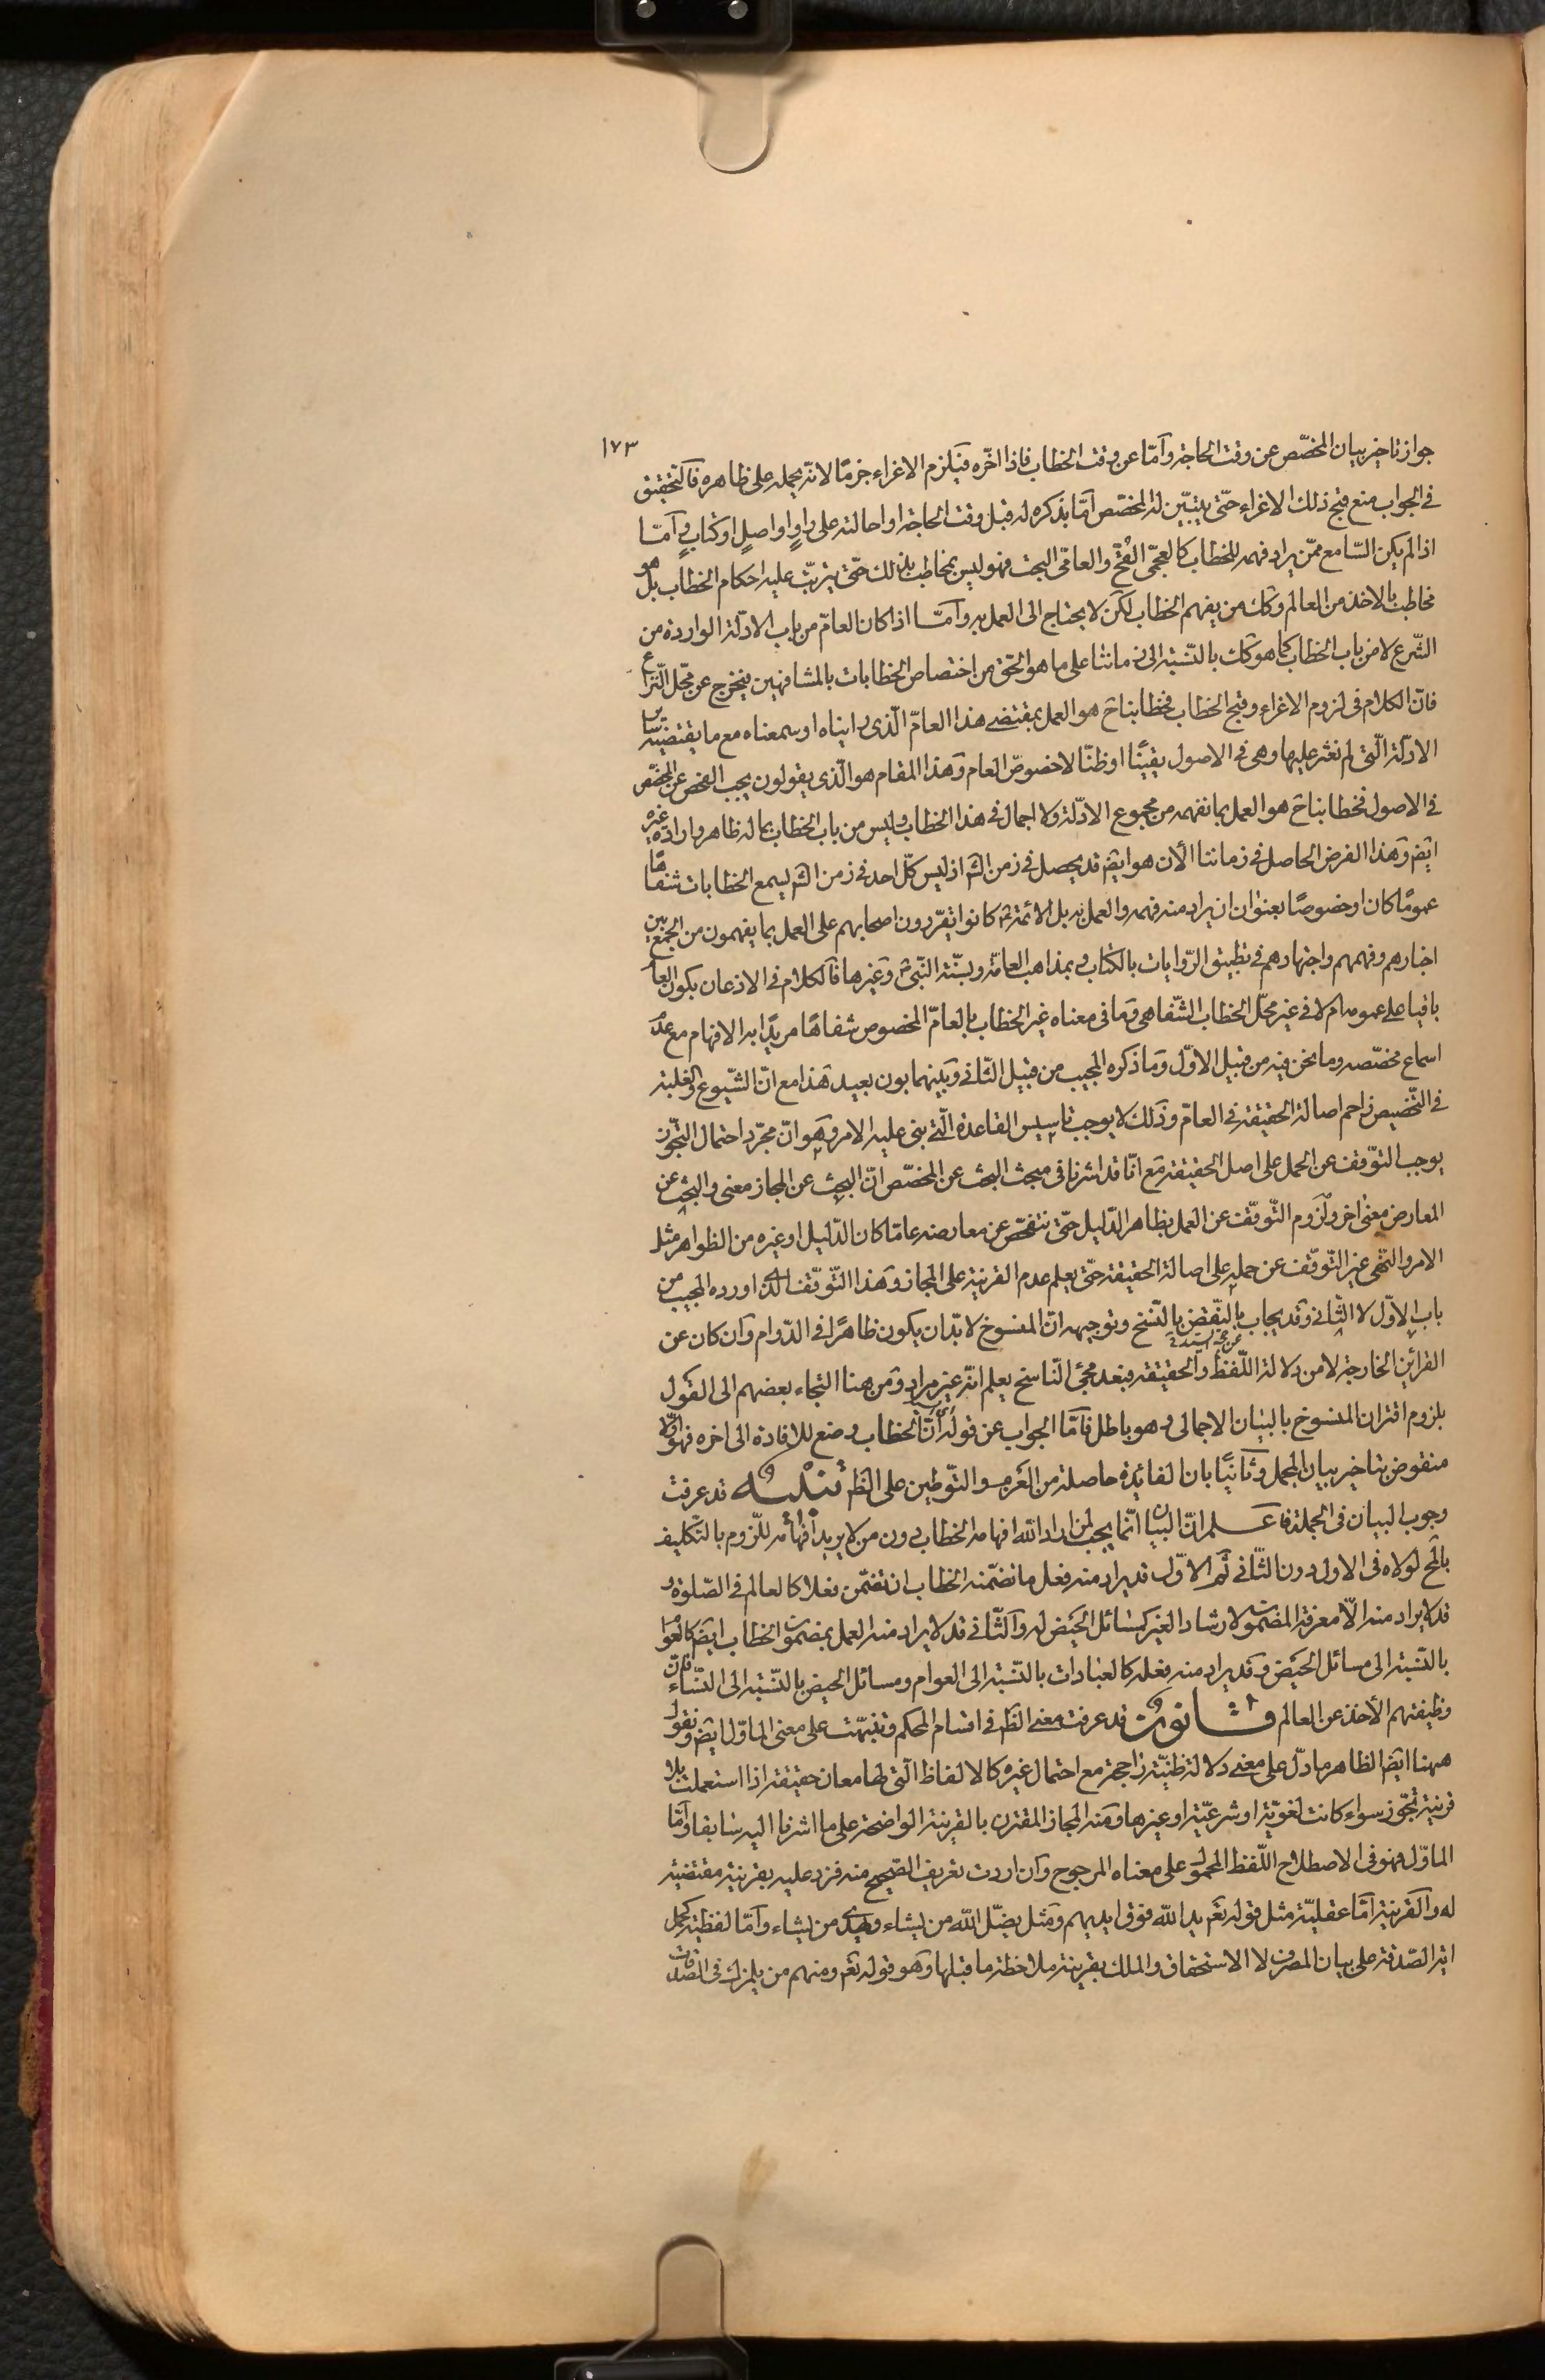 ١٧٣
جواز تاخير بيان المخصّص عن وقت الحاجة وامّا عن وقت الخطاب فاذا اخّره فيلزم الاغراء جزمًا لانّه يحمله على ظاهره فالتحقيق
فى الجواب منع قبح ذلك الاغراء حتّى يتبيّن له المخصّص امّا بذكره له قبل وقت الحاجة او احالته على راوٍ او اصلٍ او كتابٍ وامّا
اذا لم يكن السّامع ممّن يراد فهمه للخطاب كالعجمىّ القحّ والعامىّ البحت فهو ليس بمخاطب بذلك حتّى يترتّب عليه احكام الخطاب بل هو
مخاطب بالاخذ من العالم وكك من يفهم الخطاب لكن لا يحتاج الى العمل به وامّا اذا كان العامّ من باب الادلّة الواردة من
الشّرع لا من باب الخطاب كما هو كك بالنّسبة الى زماننا على ما هو الحّق من اختصاص الخطابات بالمشافهين فيخرج عن محّل النّزاع
فانّ الكلام فى لزوم الاغراء وقبح الخطاب فخطابنا ح هو العمل بمقتضى هذا العامّ الّذى رايناه او سمعناه مع ما يقتضيه سائر
الادلّة الّتى لم نعثر عليها وهى فى الاصول يقينًا او ظنّا لا خصوص العام وهذا المقام هو الّذى يقولون يجب الفحص عن المخصّص
فى الاصول فخطابنا ح هو العمل بما نفهمه من مجموع الادلّة ولا اجمال فى هذا الخطاب وليس من باب الخطاب بما له ظاهر وارادة غيره
ايضً وهذا الفرض الحاصل فى زماننا الآن هو ايضً قد يحصل فى زمن الشّ اذ ليس كلّ احد فى زمن الشّ ليسمع الخطابات شفاهًا
عمومًا كان او خصوصًا بعنوان ان يراد منه فهمه والعمل به بل الائمّة ع كانوا يقرّرون اصحابهم على العمل بما يفهمون من الجمع بين
اخبارهم وفهمهم واجتهادهم فى تطبيق الرّوايات بالكتاب وبمذاهب العامّة وبسنّة النّبى ص وغيرها فالكلام فى الاذعان بكون العامّ
باقيا على عمومه ام لا فى غير محّل الخطاب الشّفاهى وما فى معناه غير الخطاب بالعامّ المخصوص شفاهًا مريدًا به الافهام مع عدم
اسماع مخصّصه وما نحن فيه من قبيل الاوّل وما ذكره المجيب من قبيل الثّانى وبينهما بون بعيد هذا مع انّ الشّيوع والغلبة
فى التّخصيص زاحم اصالة الحقيقة فى العامّ وذلك لا يوجب تاسيس القاعدة الّتى بنى عليه الامر وهو انّ مجرّد احتمال التّجوّز
يوجب التّوقف عن الحمل على اصل الحقيقة مع انّا قد اشرنا فى مبحث البحث عن المخصّص انّ البحث عن المجاز معنى والبحث عن
المعارض معنى اخر ولزوم التّوقّف عن العمل بظاهر الدّليل حتّى نتفحّص عن معارضه عامّا كان الدّليل او غيره من الظواهر مثل
الامر والنّهى غير التّوقّف عن حمله على اصالة الحقيقة حتّى يعلم عدم القرينة على المجاز وهذا التّوقّف الّذى اورده المجيب من
باب الاوّل لا الثّانى وقد يجاب بالنّقض بالنّسخ وتوجيهه انّ المنسوخ لا بدّ ان يكون ظاهرًا فى الدّوام وان كان عن
القرائن الخارجة لا من دلالة اللّفظ والحقيقة فبعد مجئ النّاسخ يعلم انّه غير مراد ومن هنا التجاء بعضهم الى القول
بلزوم اقتران المنسوخ بالبيان الاجمالى وهو باطل فامّا الجواب عن قوله انّ الخطاب وضع للافادة الى اخره فهو اوّلا
منقوض بتاخير بيان المجمل وثانيًا بان الفايدة حاصلة من العزم والتّوطين على الظّم تنبيه قد عرفت
وجوب البيان فى الجملة فاعلم انّ البيان انّما يجب لمن اراد الله افهامه الخطاب دون من لا يريد افهامه للّزوم بالتّكليف
بالمح لولاه فى الاول دون الثّانى ثم الاوّل قد يراد منه فعل ما تضمّنه الخطاب ان تضمّن فعلا كالعالم فى الصّلوة و
قد لا يراد منه الّا معرفة المضمون لارشاد الغير كمسائل الحيض له والثّانى قد لا يراد منه العمل بمضمون الخطاب ايضً كالعوام
بالنّسبة الى مسائل الحيض وقد يراد منه فعله كالعبادات بالنّسبة الى العوام ومسائل الحيض بالنّسبة الى النّساء فان
وظيفتهم الأخذ عن العالم قانون قد عرفت معنى الظّم فى اقسام المحكم وتنبّهت على معنى الماوّل ايضً ونقول
ههنا ايضً الظاهر ما دلّ على معنى دلالة ظنّية راجحة مع احتمال غيره كالالفاظ الّتى لها معان حقيقة اذا استعملت بلا
قرينة تجّوز سواء كانت لغويّة او شرعيّة او غيرها ومنه المجاز المقترن بالقرينة الواضحة على ما اشرنا اليه سابقا وامّا
الماوّل فهو فى الاصطلاح اللّفظ المحمول على معناه المرجوح وان اردت تعريف الصّحيح منه فزد عليه بقرينة مقتضية
له والقرينة امّا عقليّة مثل قوله تعم يد الله فوق ايديهم ومثل يضلّ الله من يشاء ويهدى من يشاء وامّا لفظية كحمل
اية الصّدقة على بيان المصرف لا الاستحقاق والملك بقرينة ملاحظة ما قبلها وهو قوله تعم ومنهم من يلمزك فى الصّدقات